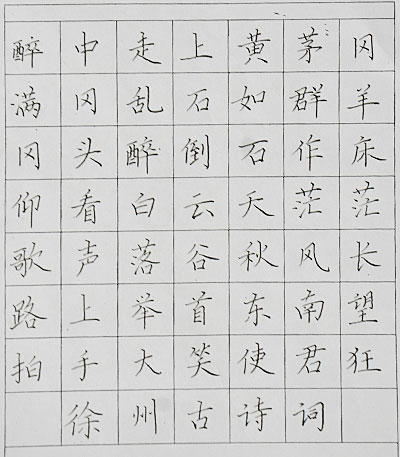 醉中走上黄茅冈
满冈乱石如群羊
冈头醉倒石作床
仰看白云天茫茫
歌声落谷秋风长
路上举首东南望
拍手大笑使君狂
徐州古诗词